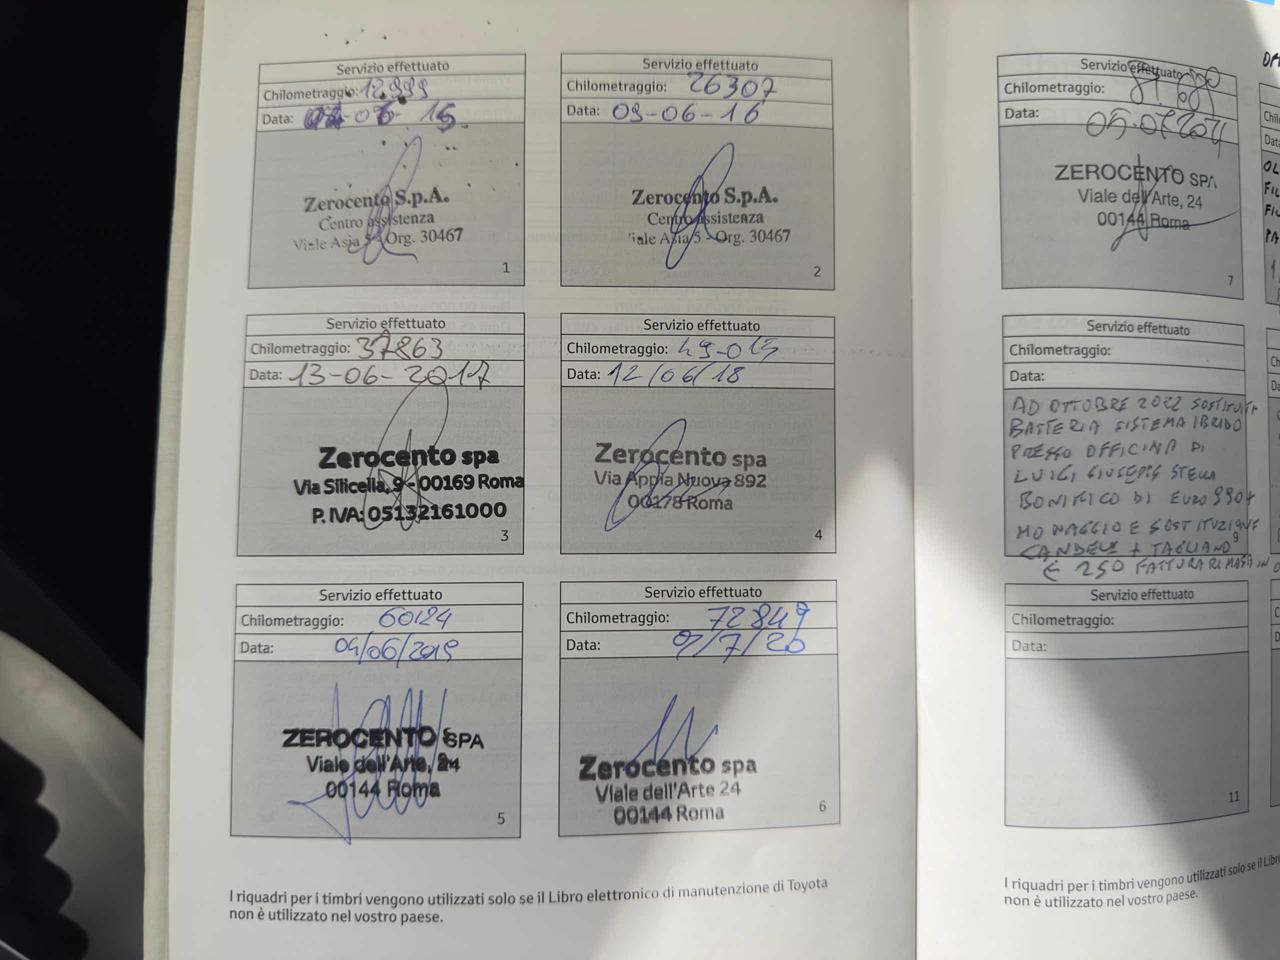 Servizio effettuato
Chilometraggio: 12999
Data: 15
Zerocento S.p.A.
Centro assistenza
Viale Asia 5 - Org. 30467
1
Servizio effettuato
Chilometraggio: 26307
Data: 09-06-16
Zerocento S.p.A.
Centro assistenza
Viale Asia 5 - Org. 30467
2
Servizio effettuato
Chilometraggio: 37863
Data: 13-06-2017
Zerocento spa
Via Silicella, 9 - 00169 Roma
P. IVA: 05132161000
3
Servizio effettuato
Chilometraggio: 49-015
Data: 12/06/18
Zerocento spa
Via Appia Nuova 892
00178 Roma
4
Servizio effettuato
Chilometraggio: 60124
Data: 04/06/2019
ZEROCENTO SPA
Viale dell'Arte, 24
00144 Roma
5
Servizio effettuato
Chilometraggio: 72849
Data: /7/20
Zerocento spa
Viale dell'Arte 24
00144 Roma
6
I riquadri per i timbri vengono utilizzati solo se il Libro elettronico di manutenzione di Toyota
non è utilizzato nel vostro paese.
Servizio effettuato
Chilometraggio:
Data: 05-07-2021
ZEROCENTO SPA
Viale dell'Arte, 24
00144 Roma
7
Servizio effettuato
Chilometraggio:
Data:
AD OTTOBRE 2022 SOSTITUITA
BATTERIA SISTEMA IBRIDO
PRESSO OFFICINA DI
LUIGI GIUSEPPE STELLA
BONIFICO DI EURO 990+
E SOSTITUZIONE
9
CANDELE + TAGLIANDO
€ 250 FATTURA RIMASTA IN
Servizio effettuato
Chilometraggio:
Data:
11
I riquadri per i timbri vengono utilizzati solo se il Libro
non è utilizzato nel vostro paese.